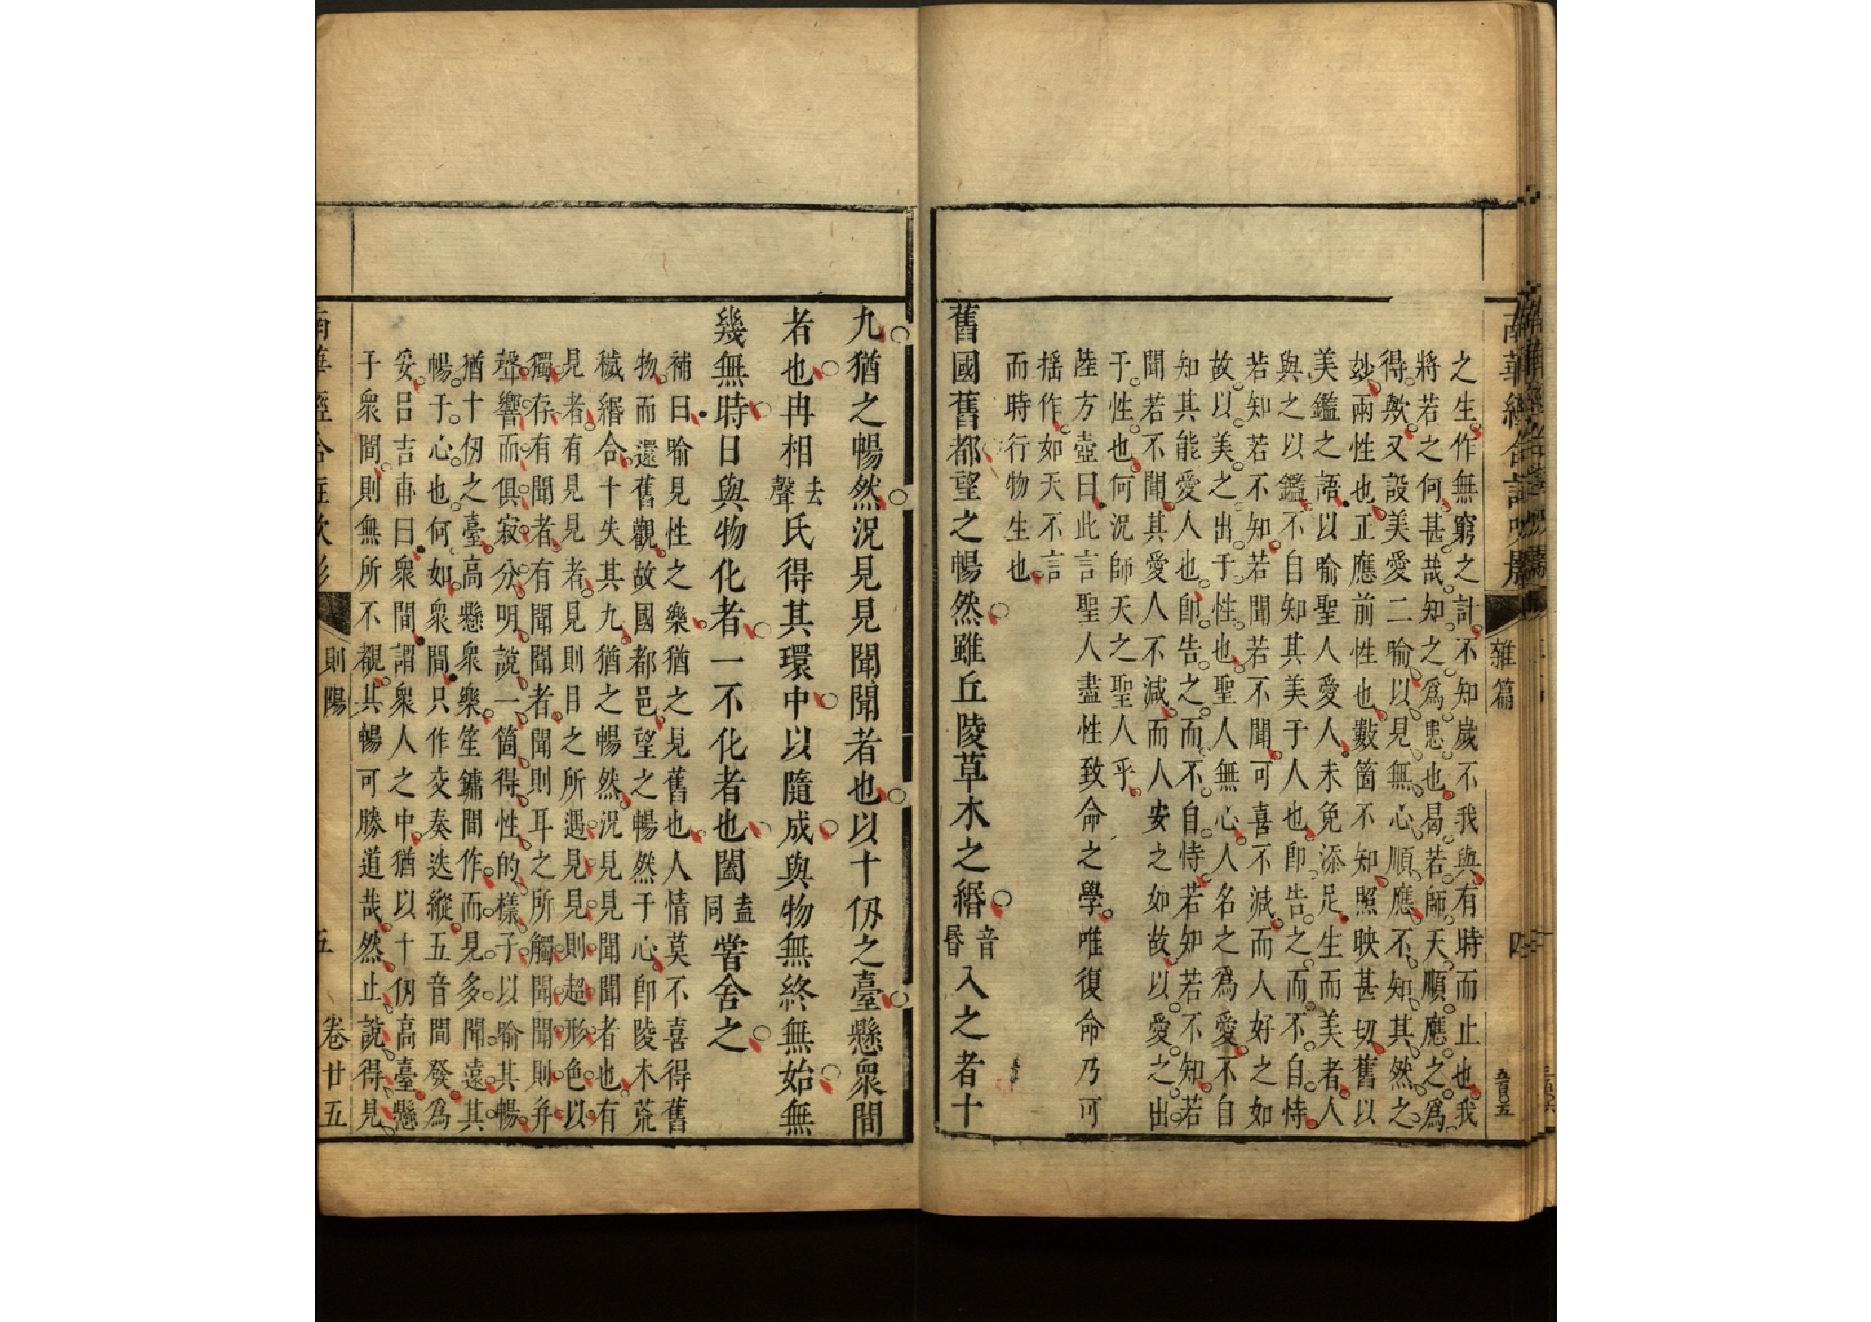 雜篇
之生作無窮之計不知歲不我與有時而止也我
將若之何甚哉知之爲患也曷若師天順應之爲
得歟又設美愛二喻以見無心順應不知其然之
妙兩性也正應前性也數箇不知照映甚切舊以
美鑑之語以喻聖人愛人未免添足生而美者人
與之以鑑不自知其美于人也卽告之而不自恃
若知若不知若聞若不聞可喜不減而人好之如
故以美之出于性也聖人無心人名之爲愛不自
知其能愛人也卽告之而不自恃若知若不知若
聞若不聞其愛人不減而人安之如故以愛之出
于性也何況師天之聖人乎
陸方壺曰此言聖人盡性致命之學唯復命乃可
揺作如天不言
而時行物生也
舊國舊都望之暢然雖丘陵草木之緡音昬入之者十
九猶之暢然況見見聞聞者也以十仞之臺懸衆間
者也冉相去聲氏得其環中以隨成與物無終無始無
幾無時日與物化者一不化者也闔盍同嘗舍之
補曰喻見性之樂猶之見舊也人情莫不喜得舊
物而還舊觀故國都邑望之暢然于心卽陵木荒
穢緡合十失其九猶之暢然況見見聞聞者也有
見見者有見見者見則目之所遇見見則超形色以
獨存有聞者有聞聞者聞則耳之所觸聞聞則并
聲響而俱寂分明說一箇得性的樣子以喻其暢
猶十仞之臺高懸衆樂笙鏞間作而見多聞遠其
暢于心也何如衆間只作交奏迭縱五音間發爲
妥呂吉甫曰衆間謂衆人之中猶以十仞高臺懸
于衆間則無所不觀其暢可勝道哉然止說得見
則陽
五
卷廿五